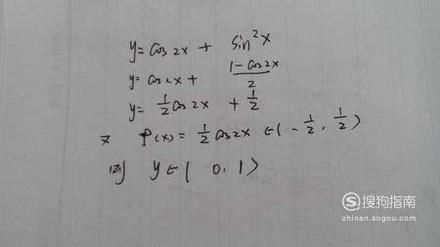 y=cos2x + sin²x
y=cos2x + (1-cos2x)/2
y= 1/2 cos2x + 1/2
又 φ(x)= 1/2 cos2x ∈(-1/2, 1/2)
则 y∈( 0, 1)
搜狗指南
zhinan.sogou.com